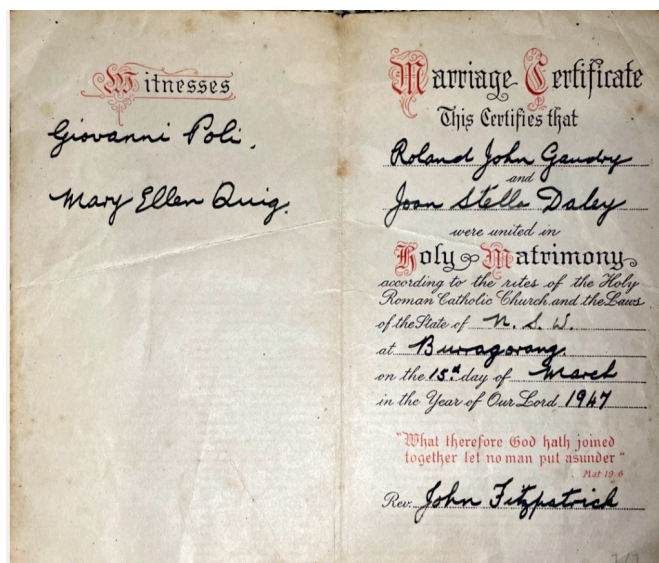 Witnesses
Giovanni Poli.
Mary Ellen Quig.
Marriage Certificate
This Certifies that
Roland John Gaudry
and
Joan Stella Daley
were united in
Holy Matrimony
according to the rites of the Holy
Roman Catholic Church and the Laws
of the State of N. S. W.
at Burragorang.
on the 15th day of March
in the Year of Our Lord 1947
"What therefore God hath joined
together let no man put asunder"
Mat 19 6
Rev. John Fitzpatrick